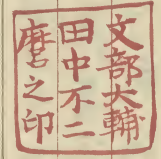 文部大輔
田中不二
麿之印